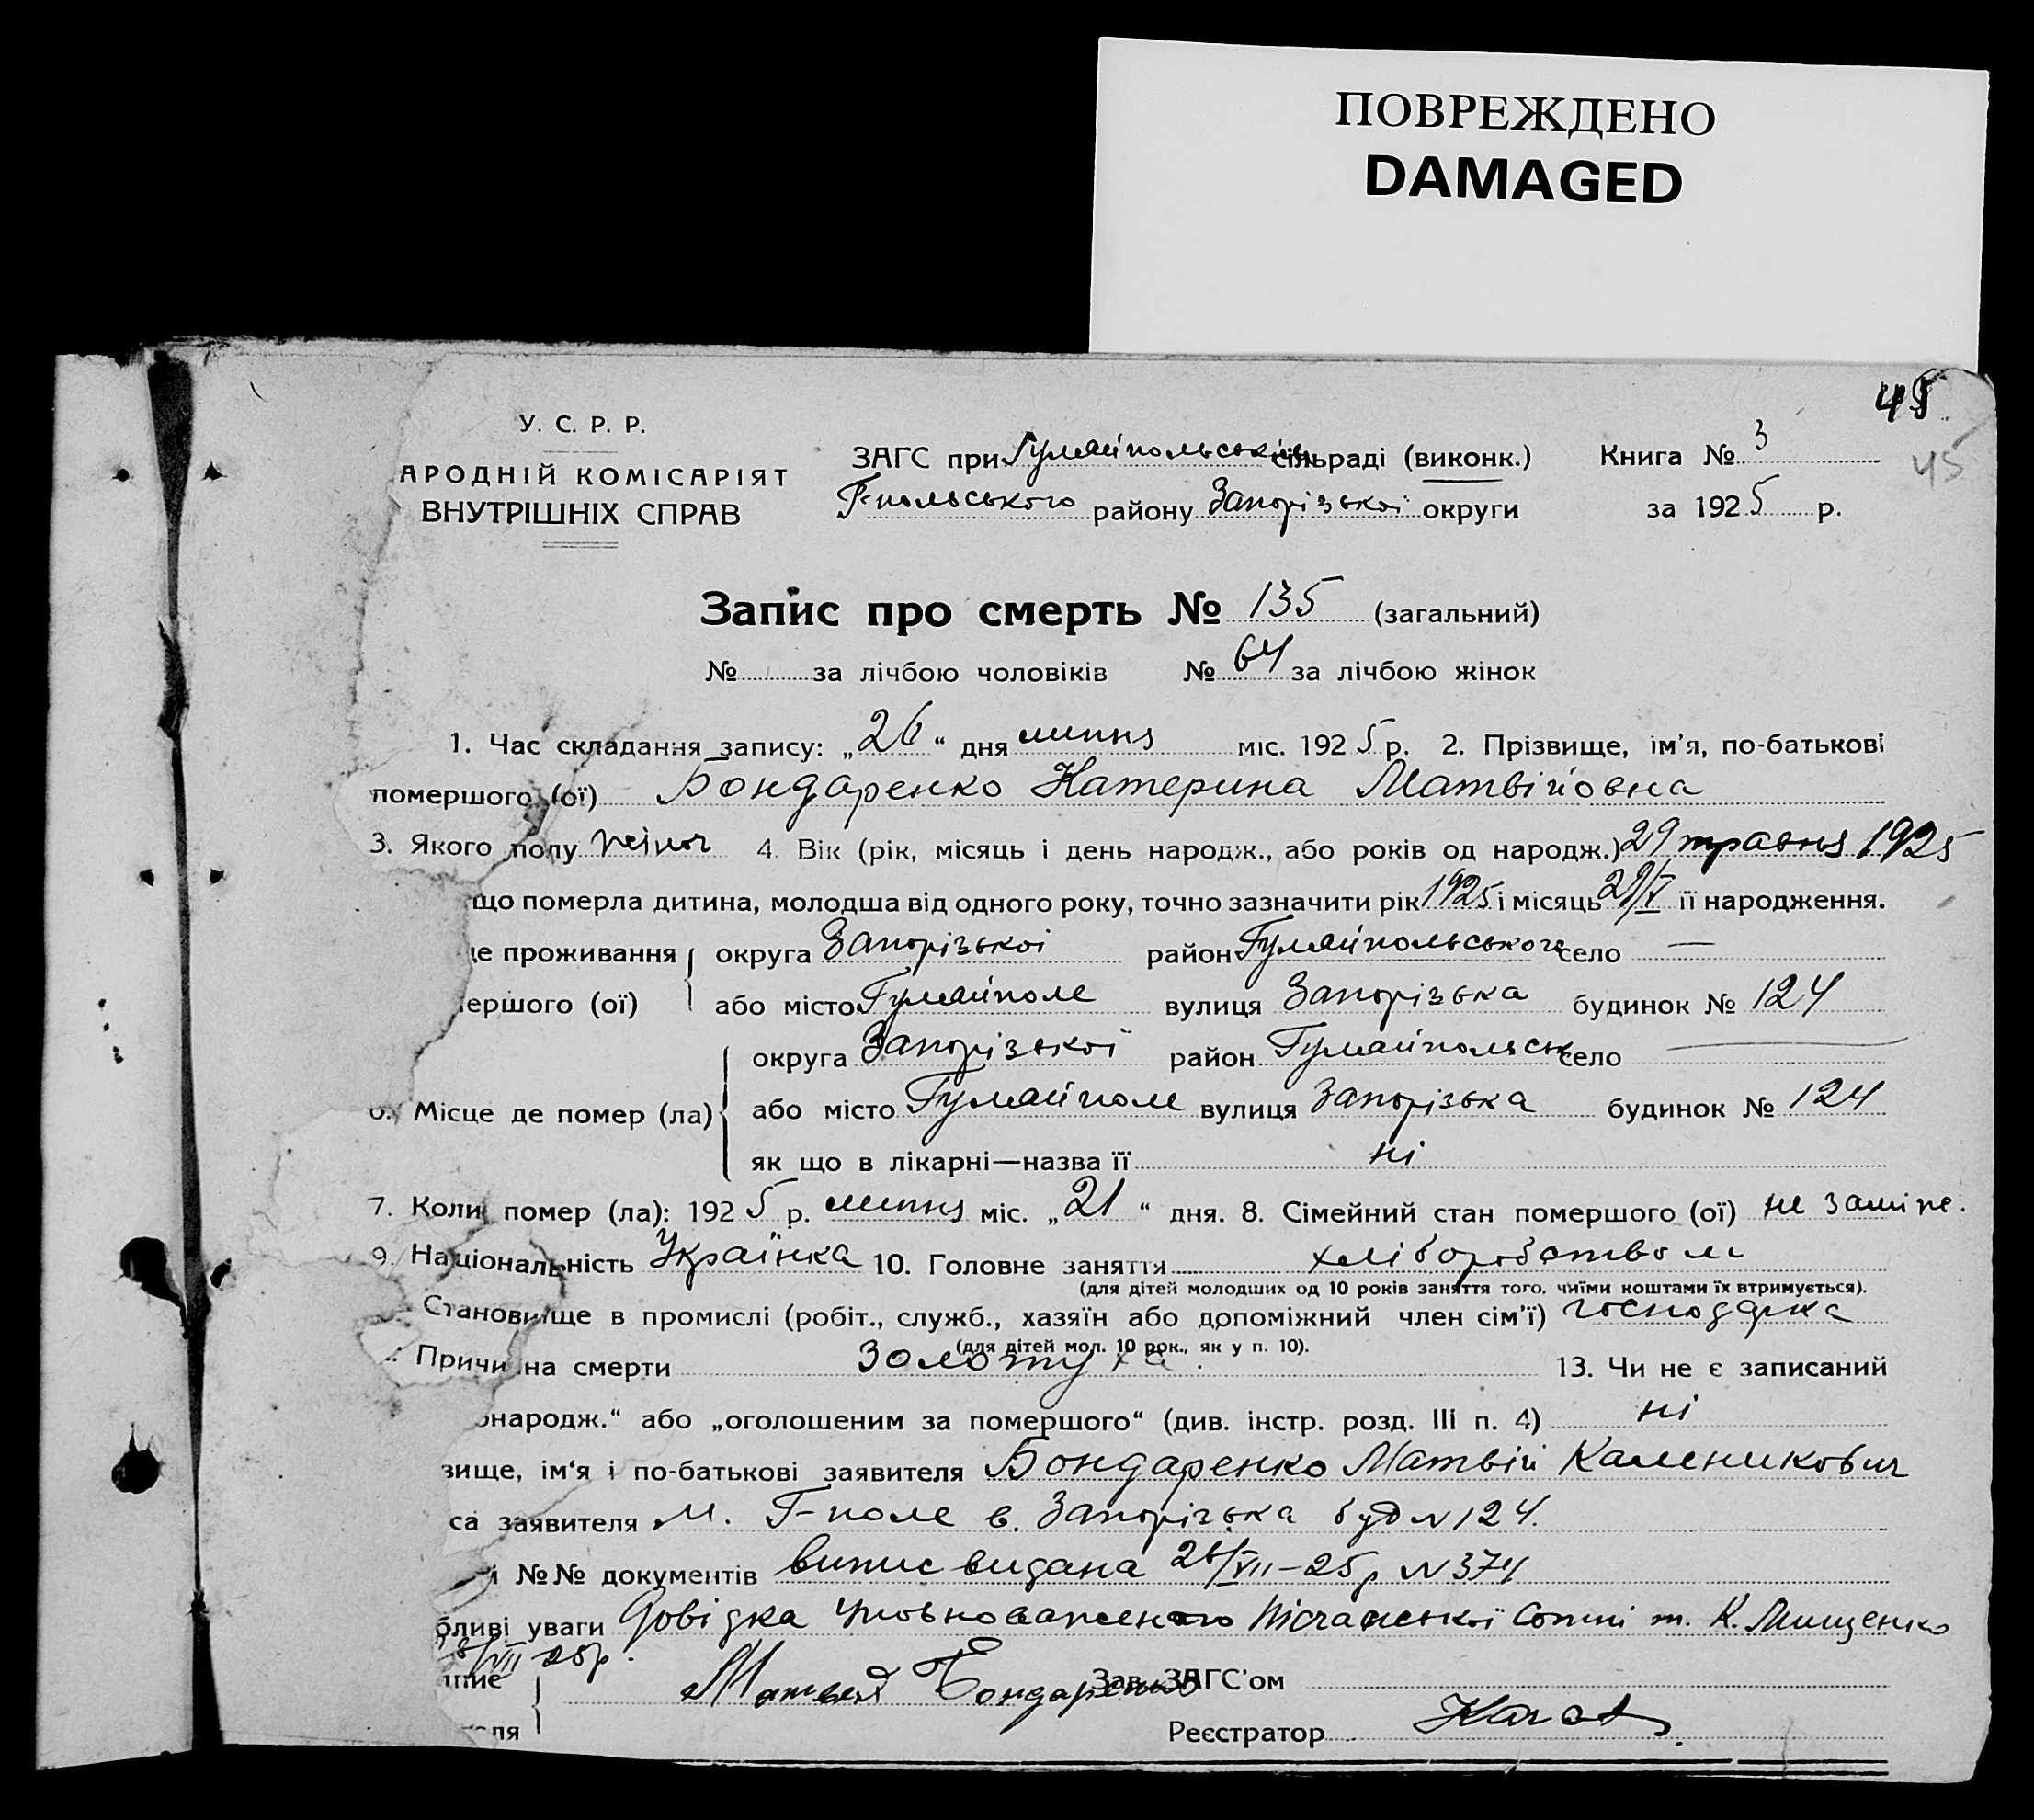 ПОВРЕЖДЕНО
DAMAGED
45
45
У. С. Р. Р.
АРОДНІЙ КОМІСАРІЯТ
ВНУТРІШНІХ СПРАВ
ЗАГС при Гуляйпольськім сільраді (виконк.)
Г-польського району Запорізької округи
Книга № 3
за 1925 р.
Запис про смерть № 135 (загальний)
№ за лічбою чоловіків № 64 за лічбою жінок
1. Час складання запису: „26“ дня липня міс. 1925 р. 2. Прізвище, ім’я, по-батькові
помершого (ої) Бондаренко Катерина Матвійовна
3. Якого полу жіноч 4. Вік (рік, місяць і день народж., або років од народж.) 29 травня 1925
що померла дитина, молодша від одного року, точно зазначити рік 1925 і місяць 29/V її народження.
це проживання округа Запорізькоі район Гуляйпольського село —
мершого (ої) або місто Гуляйполе вулиця Запорізька будинок № 124
округа Запорізької район Гуляйпольськ село —
6. Місце де помер (ла) або місто Гуляйполе вулиця Запорізька будинок № 124
як що в лікарні—назва її ні
7. Коли помер (ла): 1925 р. липня міс. „21“ дня. 8. Сімейний стан помершого (ої) не заміж.
9. Національність Українка 10. Головне заняття хліборобством
(для дітей молодших од 10 років заняття того, чиїми коштами їх втримується).
Становище в промислі (робіт., служб., хазяїн або допоміжний член сім’ї) господарка
(для дітей мол. 10 рок., як у п. 10).
Причина смерти Золотуха. 13. Чи не є записаний
онародж.“ або „оголошеним за помершого“ (див. інстр. розд. III п. 4) ні
вище, ім‘я і по-батькові заявителя Бондаренко Матвій Каленикович
са заявителя м. Г-поле в. Запорізька буд N 124.
і №№ документів випис видана 26/VII-25р N 374
бливі уваги Довідка Уповноваженого Пісчанської Сотні т. К. Лищенко
/VII 25р.
пис Матвей Бондаренко Зав. ЗАГС’ом
ля Реєстратор